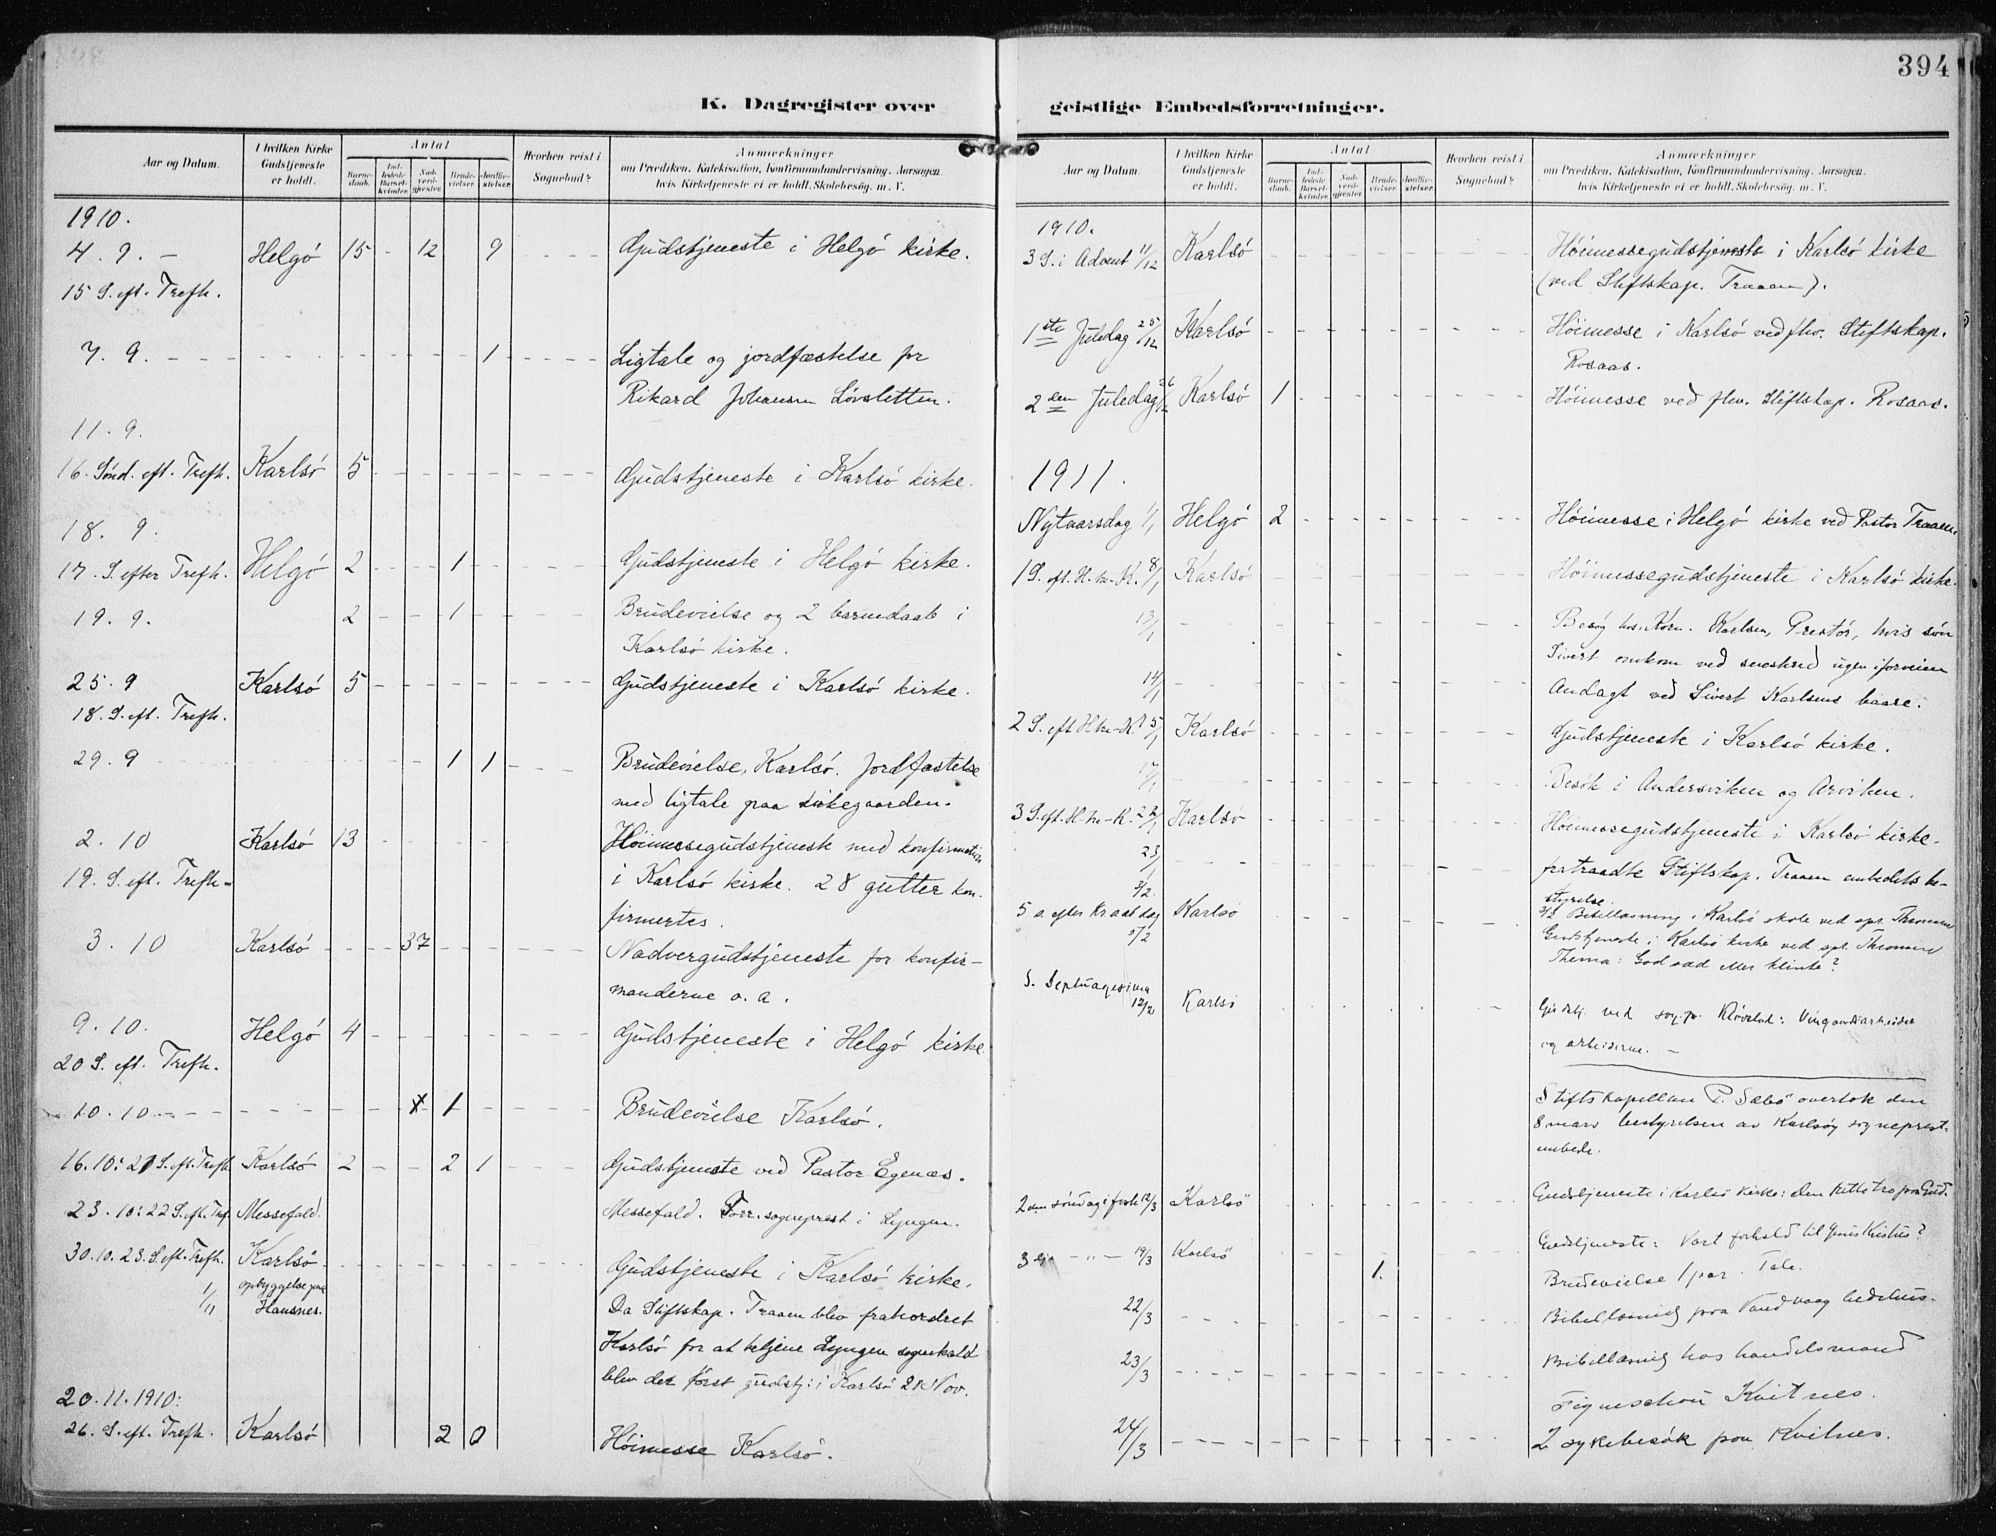 394
K. Dagregister over
Aar og Datum.
I hvilken Kirke Gudstjeneste er holdt.
Antal
Barnedaab.
Indledede Barselkvinder.
Nadverdgjester.
Brudevielser.
Jordfæstelser.
Hvorhen reist i Sognebud?
Anmærkninger
om Prædiken, Katekisation, Konfirmandundervisning. Aarsagen
hvis Kirketjeneste ei er holdt. Skolebesøg. m. V.
1910.
4. 9. - Helgö 15 - 12 9 - - - Gudstjeneste i Helgö kirke.
15 S. eft. Trefh.
7. 9. - - - - - - - 1 - - - Ligtale og jordfæstelse for
Rikard Johansen Lövsletten.
11. 9.
16. Sönd. eft. Trefh. Karlsö 5 - - - - - Gudstjeneste i Karlsö kirke.
18. 9.
17. S. efter Trefh. Helgö 2 - - 1 - - - Gudstjeneste i Helgö kirke.
19. 9. 2 - - 1 - - - Brudevielse og 2 barnedaab i
Karlsö kirke.
25. 9 Karlsö 5 - - - - - Gudstjeneste i Karlsö kirke.
18. S. eft. Trefh.
29. 9 - - - - - 1 1 - - - Brudevielse, Karlsö. Jordfæstelse
med ligtale paa kirkegaarden.
2. 10 Karlsö 13 Höimessegudstjeneste med konfirmation
19. S. eft. Trefh- i Karlsö kirke. 28 gutter kon-
firmertes.
3. 10 Karlsö - - 37 - - - Nadvergudstjeneste for konfir-
manderne o. a.
9. 10. Helgö 4 - - - - - Gudstjeneste i Helgö kirke
20 S. eft. Trefh.
10. 10 - - - - - 1 - - - Brudevielse Karlsö.
16. 10: 21 S. eft. Trefh Karlsö 2 - - 2 1 Gudstjeneste ved Pastor Egenæs.
23. 10: 22 S. eft. Tref. Messefald. Messefald. Forr. sogneprest i Lyngen.
30. 10. 23. S. eft. Trefh. Karlsö. Gudstjeneste i Karlsö kirke.
1/11 opbyggelse paa Hansnes. Da Stiftskap. Traaen blev frabeordret
Karlsö for at betjene Lyngen sognekald
blev det først gudstj: i Karlsö 20 Nov.
20. 11. 1910:
26. S. eft. Trefh. Karlsö 2 0 Höimesse Karlsö.
geistlige Embedsforretninger.
Aar og Datum.
I hvilken Kirke Gudstjeneste er holdt.
Antal
Barnedaab.
Indledede Barselkvinder.
Nadverdgjester.
Brudevielser.
Jordfæstelser.
Hvorhen reist i Sognebud?
Anmærkninger
om Prædiken, Katekisation, Konfirmandundervisning. Aarsagen
hvis Kirketjeneste ei er holdt. Skolebesøg. m. V.
1910.
3 S. i Advent 11/12 Karlsö - - - - - Höimessegudstjeneste i Karlsö kirke
(ved Stiftskap. Traaen).
1ste Juledag 25/12 Karlsö - - - - - Höimesse i Karlsö ved fhv. Stiftskap.
Rosaas.
2den Juledag 26/12 Karlsö 1 - - - - Höimesse ved fhv. Stiftskap. Rosaas.
1911.
Nytaarsdag 1/1 Helgö 2 - - - - Höimesse i Helgö kirke ved Pastor Traaen.
1 S. eft. H-tr-K. 8/1 Karlsö - - - - - Höimessegudstjeneste i Karlsö kirke.
13/1 - - - - - Besög hos Korn. Karlsen, Prestör, hvis sön
Sivert omkom ved sneskred ugen i forveien
14/1 - - - - - Andagt ved Sivert Karlsens baare.
2 S. eft H-tr-K 15/1 Karlsö - - - - - Gudstjeneste i Karlsö kirke.
17/1 - - - - - Besök i Andersviken og Arviken.
3 S. eft. H-tr-K. 22/1 Karlsö Höimessegudstjeneste i Karlsö kirke.
23/1 - - - fratraadte Stiftskap. Traaen embedets be-
styrelse.
3/2. 3/2 Bibellæsning i Karlsö skole ved spr.
5 s. efter Kr aab dag 5/2 Karlsö Gudstjeneste i Karlsö kirke ved spr.
Thema: God sæd eller klinte?
S. Septuagesima 12/2 Karlsö Gudstj. ved sog.pr. : Vingaardsarbeider
og arbeiderne. -
Stiftskapellan P. Sæbö overtok den
8 mars bestyrelsen av Karlsöy sogneprest-
embede.
2den söndag i faste 12/3 Karlsö Gudstjeneste i Karlsö kirke: den rette tro paa Gud.
3die - " - 19/3 Karlsö 1. Gudstjeneste: Vort forhold til Jesus Kristus?
Brudevielse 1 par. Tale.
22/3 - - - - Bibellæsning paa Vandvaag bedehus.
23/3 - - - - Bibellæsning hos handelsmand
Kvitnes.
24/3 - - - - 2 sykebesök paa Kvitnes.